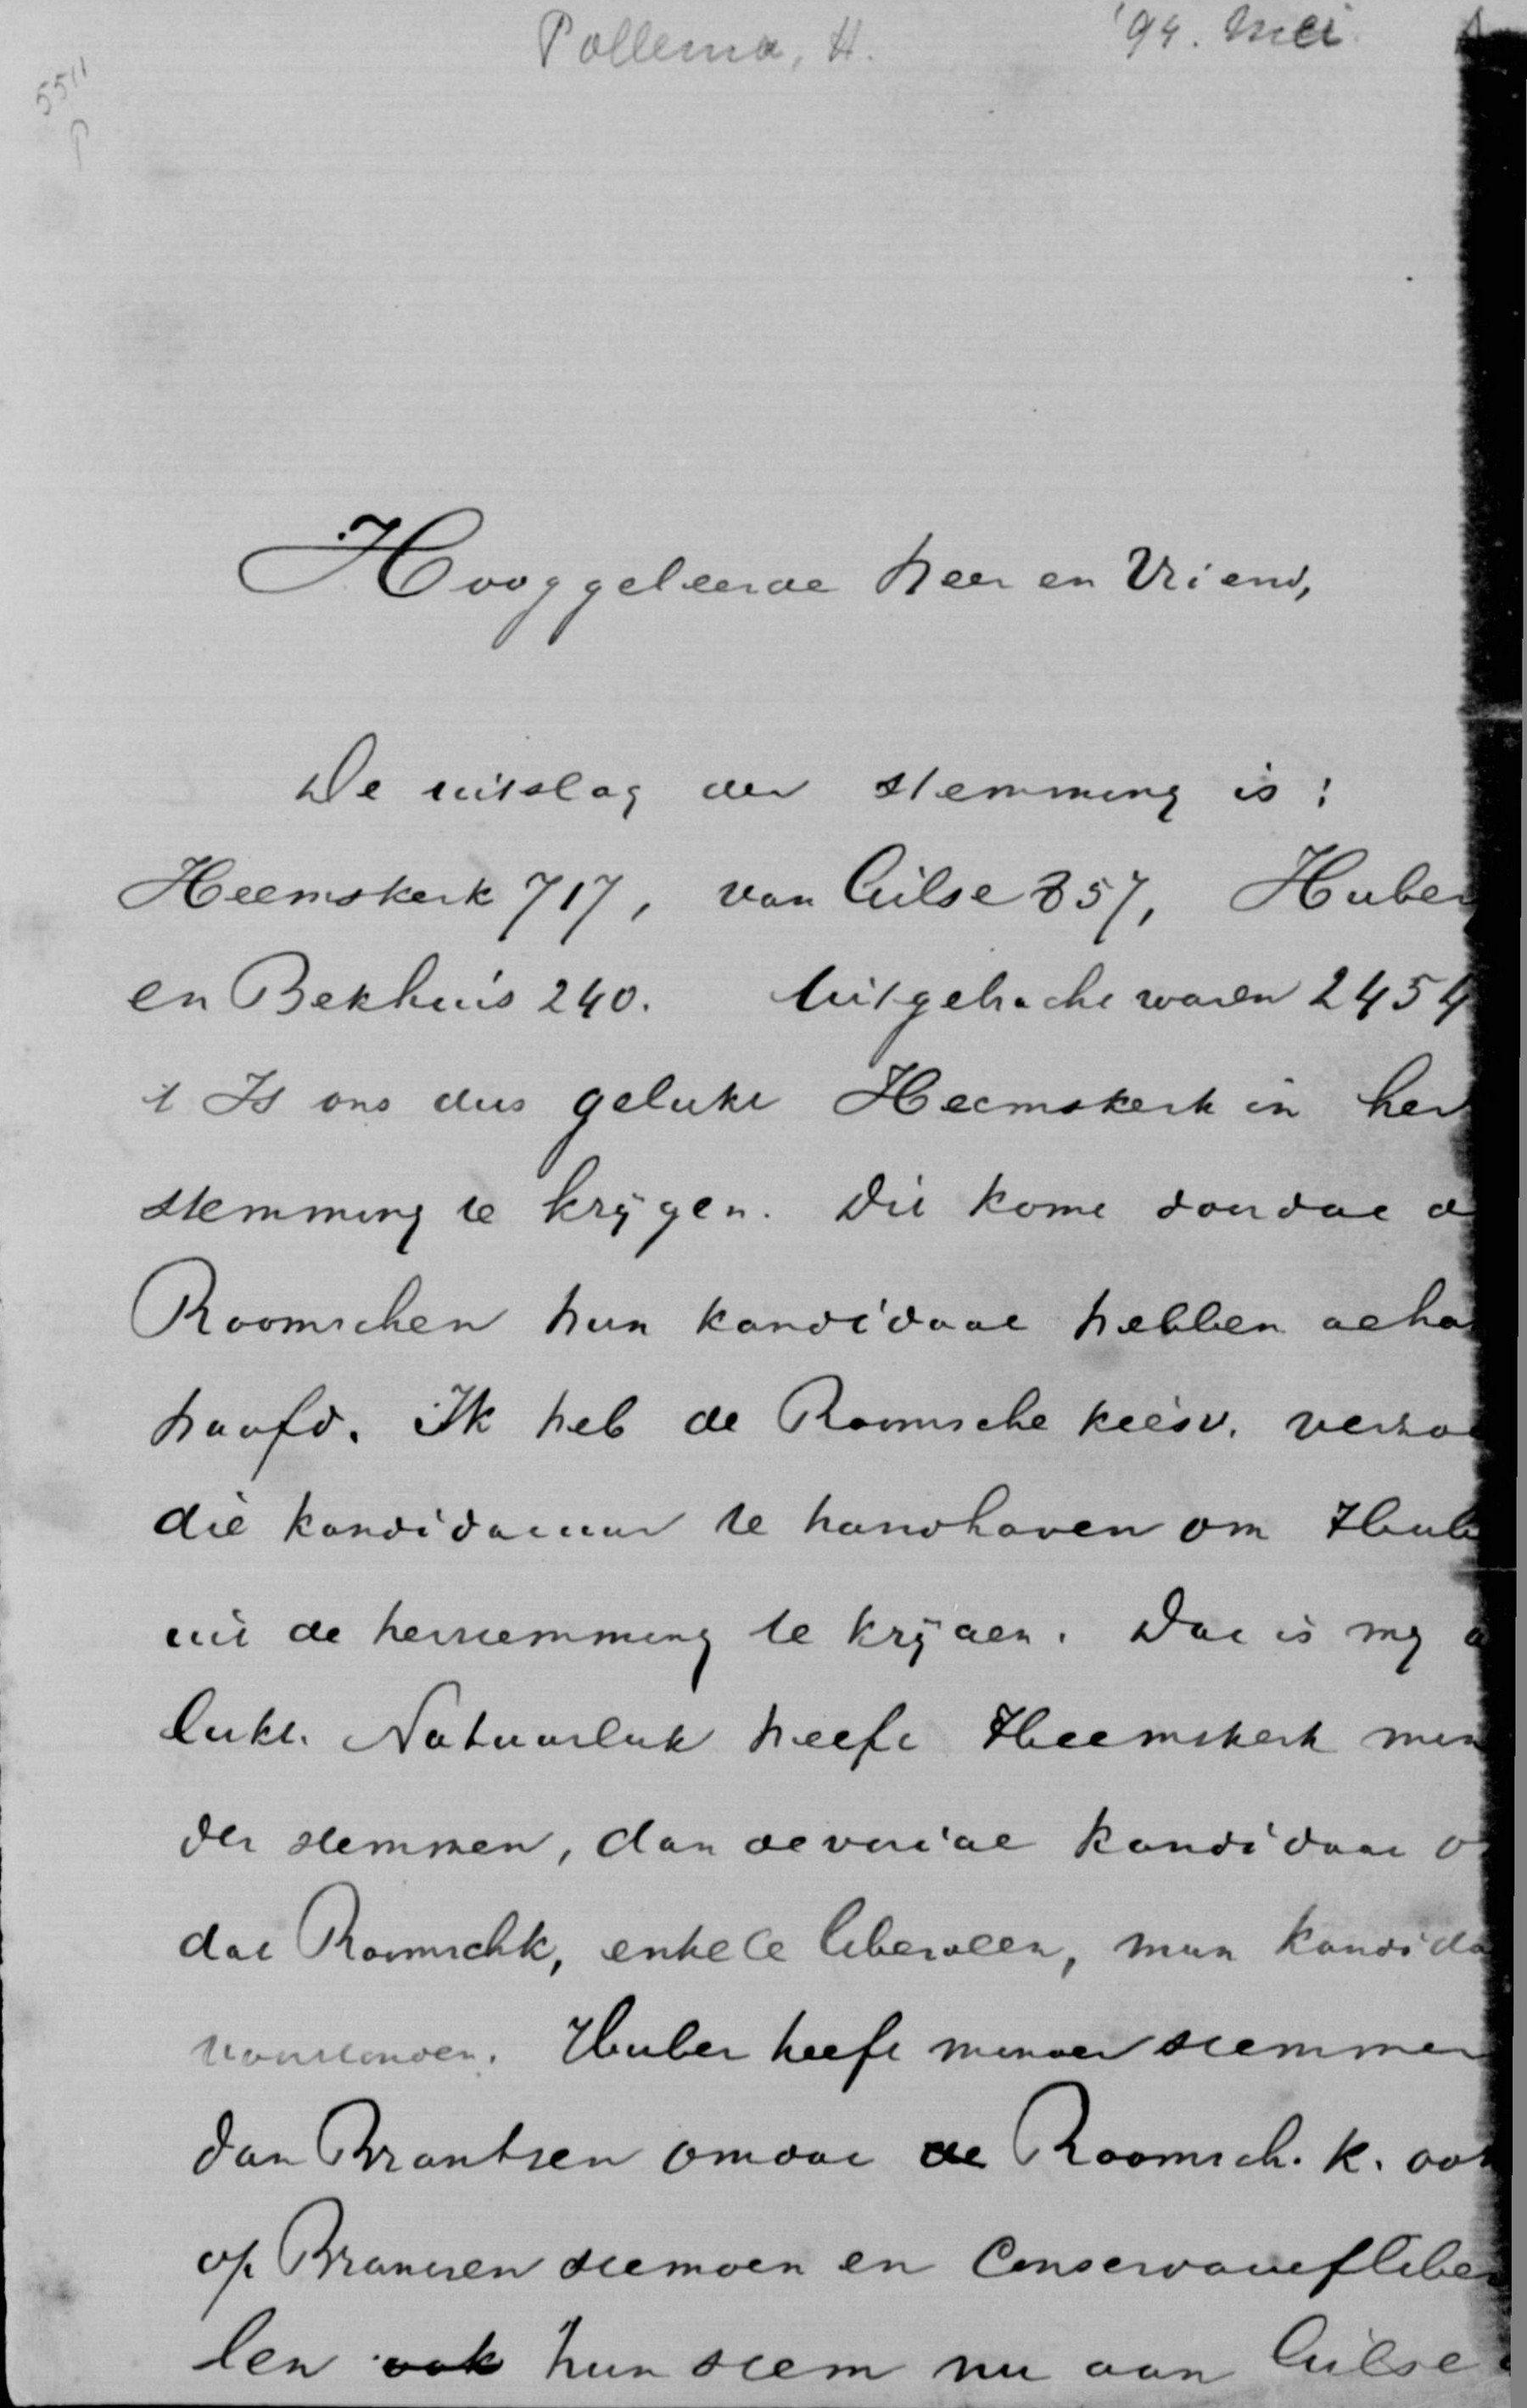 Pollema, H. '94. Mei
5511
P
Hooggeleerde heer en Vriend,
De uitslag der stemming is:
Heemskerk 717, van Gilse 857, Huber
en Bekhuis 240. Uitgebracht waren 2454
't Is ons dus gelukt Heemskerk in her
stemming te krijgen. Dit komt doordat d
Roomschen hun kandidaat hebben geha
haafd. Ik heb de Roomsche kiesv. verzoe
die kandidatuur te handhaven om Hub
uit de herstemming te krijgen. Dat is mij g
lukt. Natuurlijk heeft Heemskerk min
der stemmen, dan de vorige kandidaat o
dat Roomschk, enkele liberalen, mijn kandida
voorstonden. Huber heeft minder stemmen
dan Brantsen omdat de Roomsch. k. ook
op Brantsen stemden en Conservatiefliber
len ook hun stem nu aan Gilse